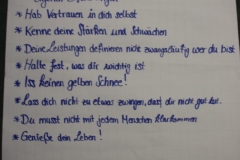 * Hab Vertrauen in dich selbst
* Kenne deine Stärken und Schwächen
* Deine Leistungen definieren nicht zwangsläufig wer du bist
* Halte fest, was dir wichtig ist
* Iss keinen gelben Schnee!
* Lass dich nicht zu etwas zwingen, das dir nicht gut tut.
* Du musst nicht mit jedem Menschen klarkommen
* Genieße dein Leben!